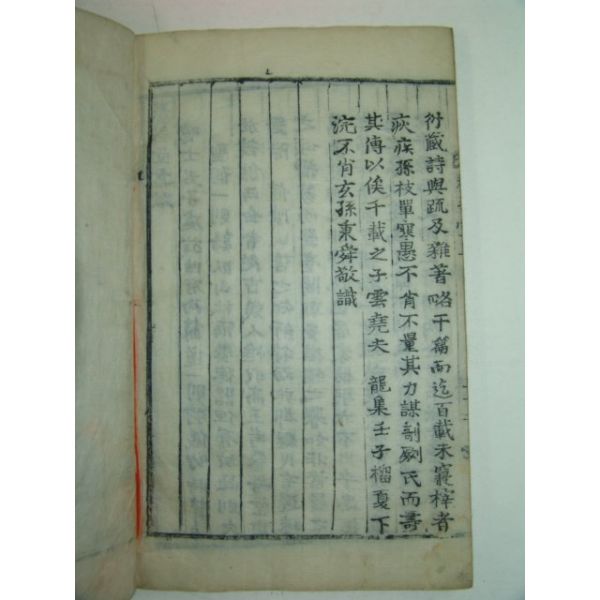 所藏詩與疏及雜著略干篇而迄百載未寔梓者
疾疾孫枝單寒愚不肖不量其力謀剞劂氏而壽
其傳以俟千載之子雲堯夫 龍集壬子榴夏下
浣不肖玄孫秉舜敬識